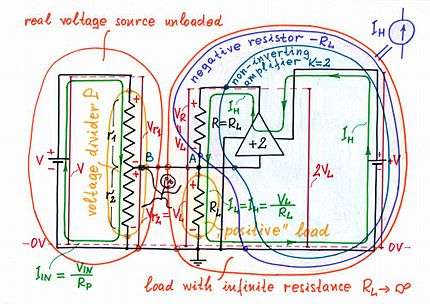 real voltage source unloaded
I_H
negative resistor -R_L
non-inverting
amplifier K=2
voltage divider P
r1
r2
V
V
V_r1
V_r2 = V_L
B
A
V_R = V_L
I_H
R=R_L
+2
I_H
2V_L
V
R_L
I_L=I_H= V_L/R_L
"positive" load
-0V
0V-
I_IN = V_IN/R_P
load with infinite resistance R_L → ∞